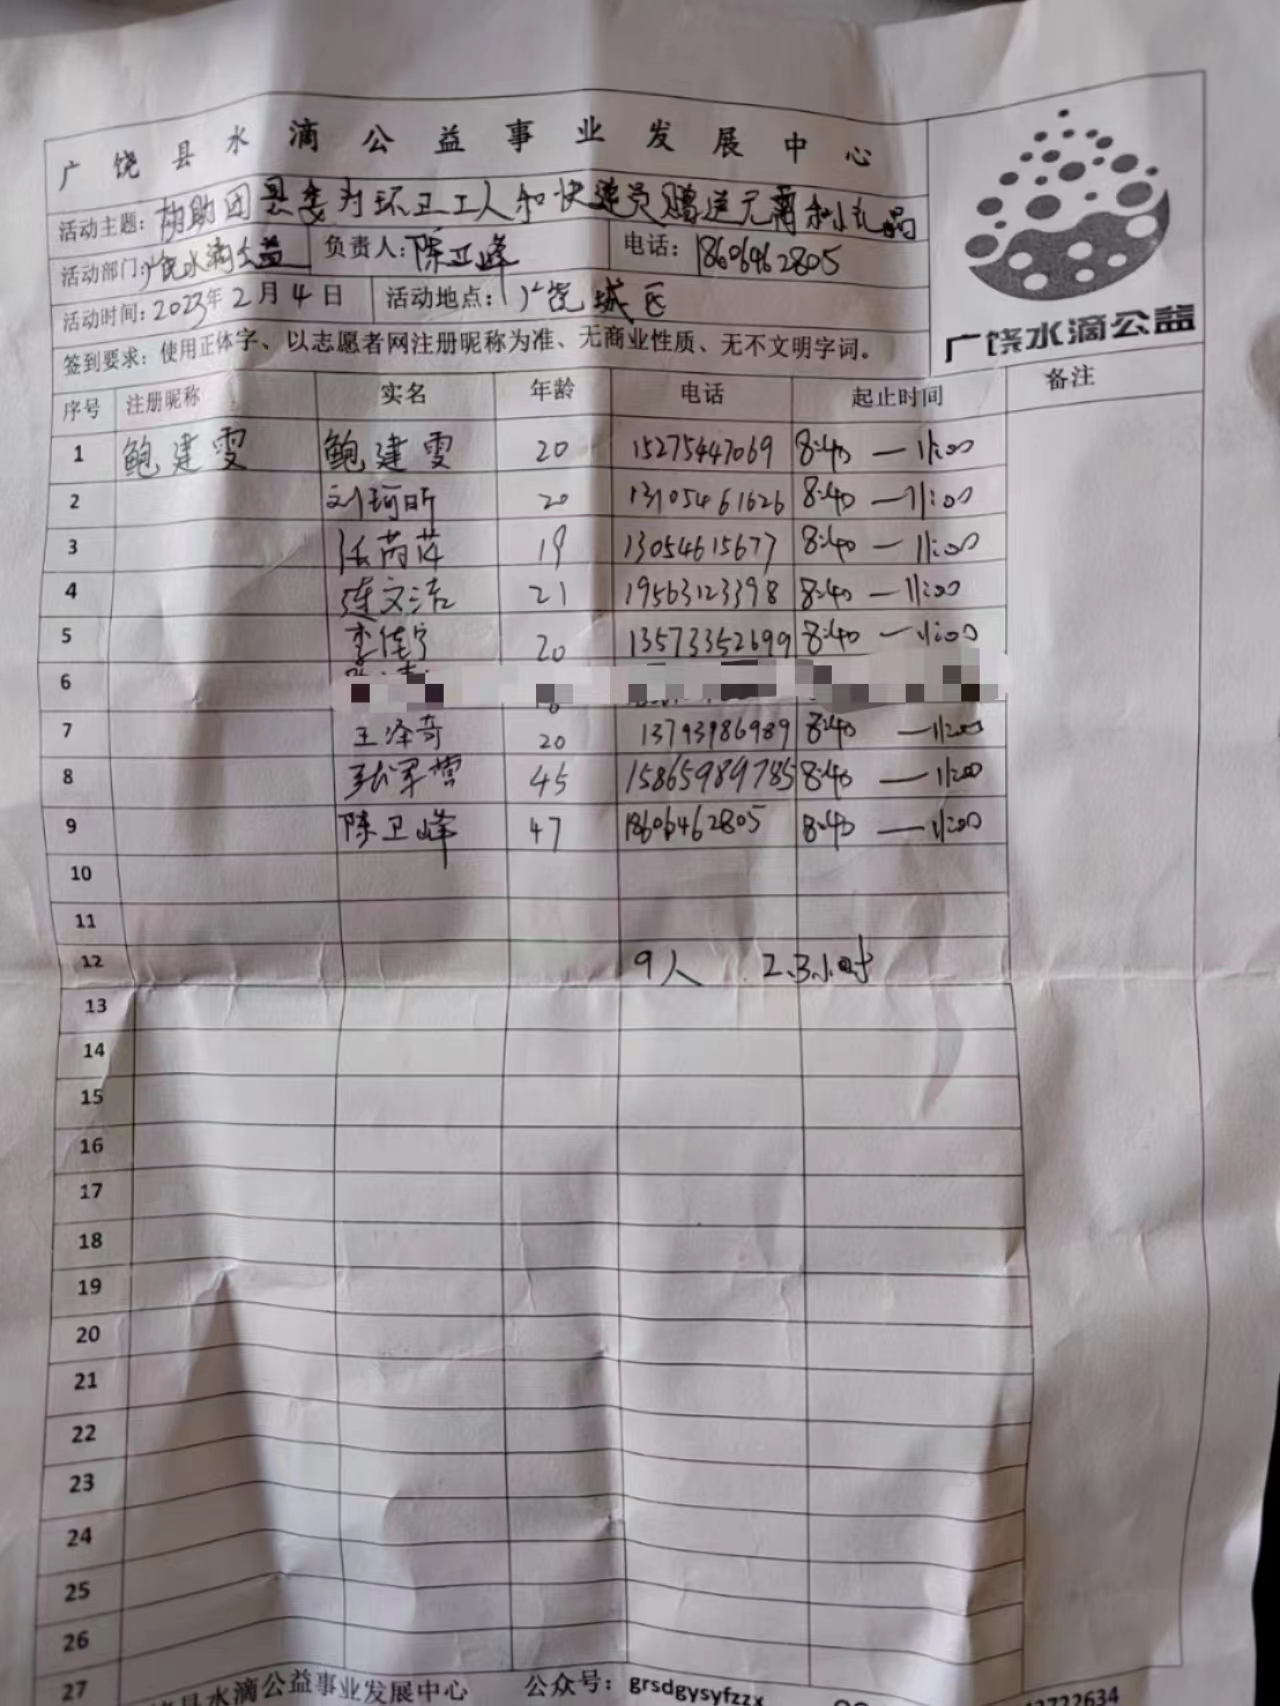 广饶县水滴公益事业发展中心
活动主题：协助团县委为环卫工人和快递员赠送元宵和小礼品
活动部门：广饶水滴公益 负责人：陈卫峰 电话：18606462805
活动时间：2023年2月4日 活动地点：广饶城区
签到要求：使用正体字、以志愿者网注册昵称为准、无商业性质、无不文明字词。
广饶水滴公益
序号 注册昵称 实名 年龄 电话 起止时间 备注
1 鲍建雯 鲍建雯 20 15275447069 8:40—11:00
2 刘珂昕 20 13105461626 8:40—11:00
3 任芮萍 19 13054615677 8:40—11:00
4 连文洁 21 19563123398 8:40—11:00
5 李佳宁 20 13573352699 8:40—11:00
6
7 王泽奇 20 13793986989 8:40—11:00
8 张军营 45 15865989785 8:40—11:00
9 陈卫峰 47 18606462805 8:40—11:00
10
11
12 9人 2.3小时
13
14
15
16
17
18
19
20
21
22
23
24
25
26
27
县水滴公益事业发展中心 公众号：grsdgysyfzzx 2722634